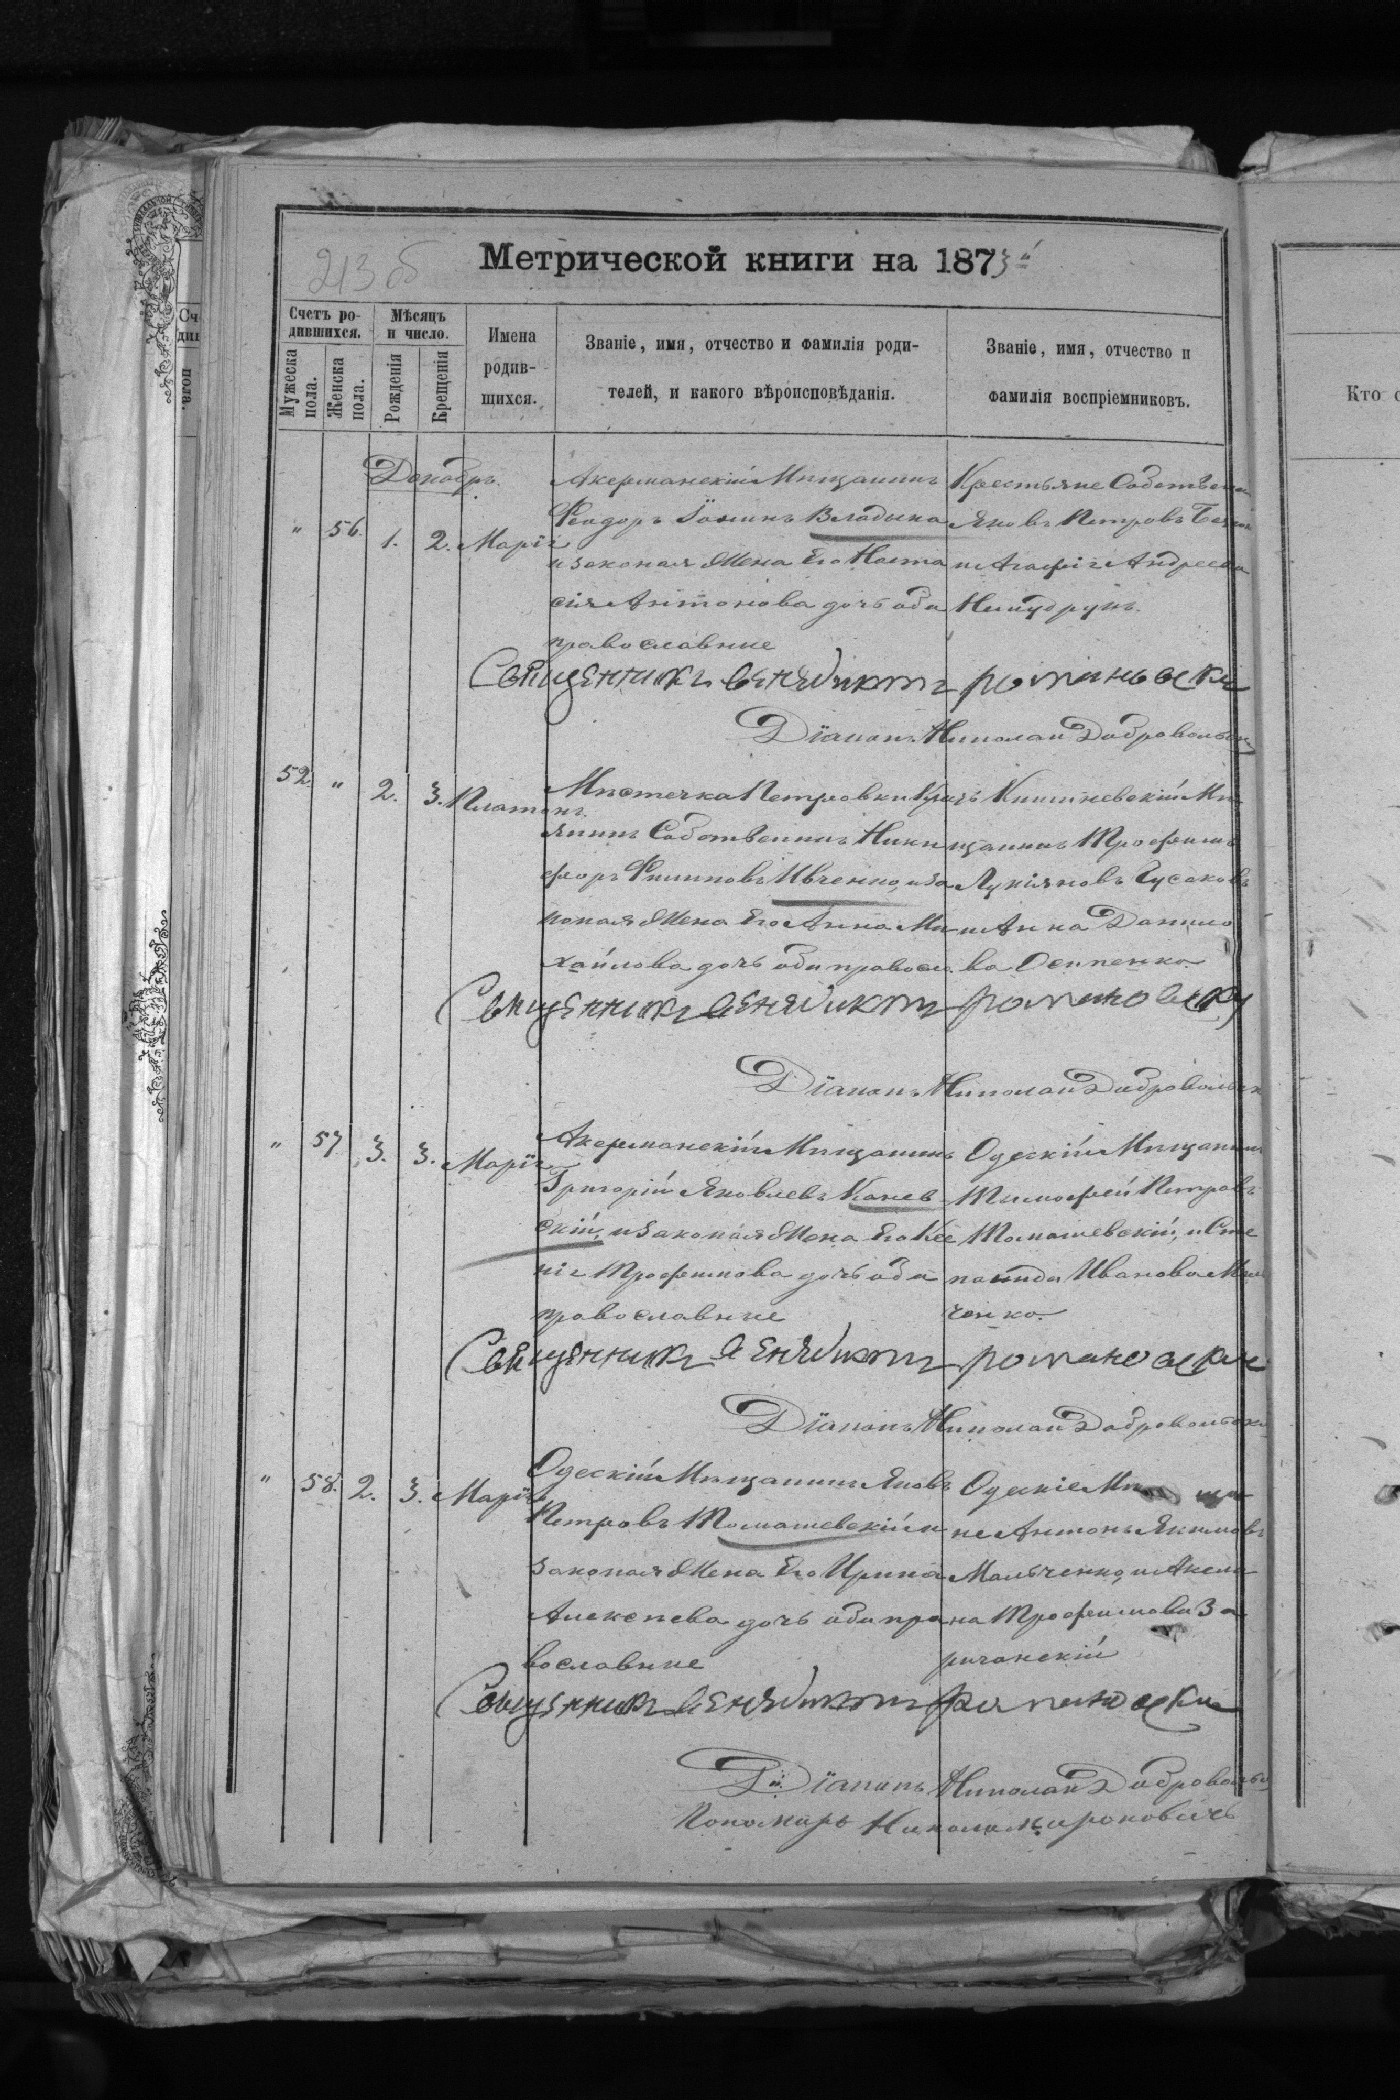 213 об
Метрической книги на 1873й
Счетъ ро-
дившихся.
Мѣсяцъ
и число.
Мужеска
пола.
Женска
пола.
Рожденія
Крещенія
Имена
родив-
шихся.
Званіе, имя, отчество и фамилія роди-
телей, и какого вѣроисповѣданія.
Званіе, имя, отчество и
фамилія воспріемниковъ.
Кто с
Декабрь.
" 56. 1. 2. Марія
Акерманскій Мѣщанинъ
Феодоръ Владыка
и законая Жена Его Наста
сія Антонова дочь оба
православные
Крестьяне
Яковъ Петровъ
и Агафія Андреева
Священникъ Венедиктъ романовски
Діаконъ Николай Добровольск
52. " 2. 3. Платонъ.
Мѣстечка Петровки Крестъ
янинъ Собственикъ Ники
форъ Филиповъ Ивченко, и за
коная Жена Его Анна Ми
хайлова дочь оба правосл.
Кишиневскій Мѣ
щанинъ Трофимъ
Лукіяновъ Гусаковъ
и Анна Данило
ва Осипенко
Священникъ Венедиктъ романовски
Діаконъ Николай Добровольск
" 57 3. 3. Марія
Акерманскій Мѣщанинъ
Григорій Яковлевъ Канев
скій, и законая Жена Его Ксе
нія Трофимова дочь оба
православные
Одескій Мѣщанинъ
Тимофей Петровъ
Томашевскій, и Сте
панида Иванова
ченко.
Священникъ Венедиктъ романовски
Діаконъ Николай Добровольски
" 58. 2. 3. Марія
Одескій Мѣщанинъ Яковъ
Петровъ Томашевскій и
законая Жена Его Ирина
Алексѣева дочь оба пра
вославные
Одескіе Мѣща
не Антонъ Якимовъ
Мальченко, и Аксе
на Трофимова За
ричанскій
Священникъ Венедиктъ романовски
Діаконъ Николай Добровольс
Пономарь Николай Мироновичъ